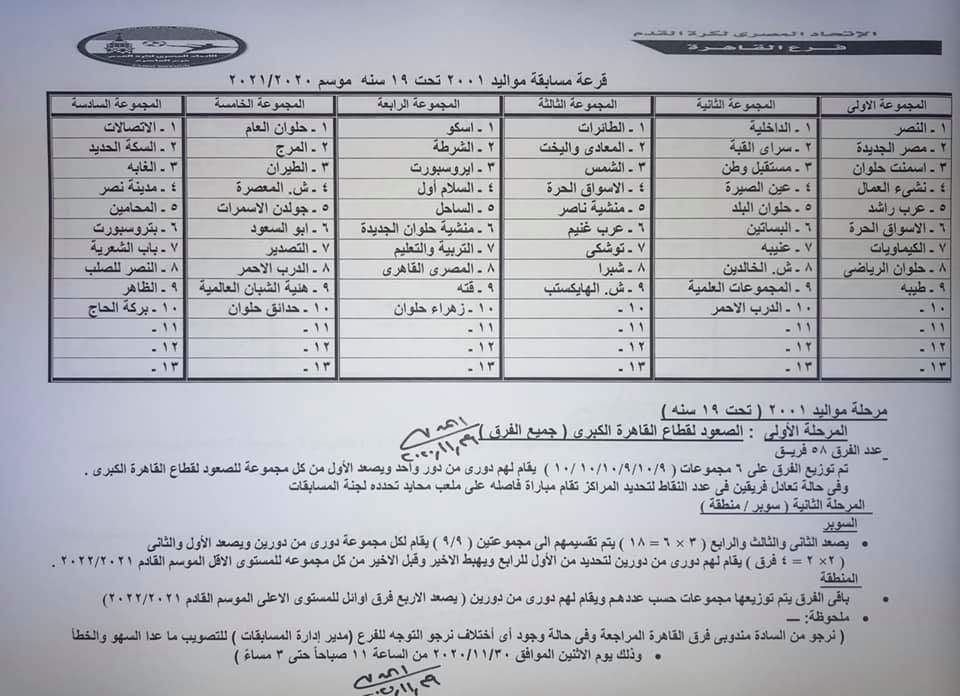 الإتحاد المصرى لكرة القدم
فرع القاهرة
قرعة مسابقة مواليد ٢٠٠١ تحت ١٩ سنه موسم ٢٠٢١/٢٠٢٠
المجموعة الاولى المجموعة الثانية المجموعة الثالثة المجموعة الرابعة المجموعة الخامسة المجموعة السادسة
١ - النصر ١ - الداخلية ١ - الطائرات ١ - اسكو ١ - حلوان العام ١ - الاتصالات
٢ - مصر الجديدة ٢ - سراى القبة ٢ - المعادى واليخت ٢ - الشرطة ٢ - المرج ٢ - السكة الحديد
٣ - اسمنت حلوان ٣ - مستقبل وطن ٣ - الشمس ٣ - ايروسبورت ٣ - الطيران ٣ - الغابه
٤ - نشىء العمال ٤ - عين الصيرة ٤ - الاسواق الحرة ٤ - السلام أول ٤ - ش. المعصرة ٤ - مدينة نصر
٥ - عرب راشد ٥ - حلوان البلد ٥ - منشية ناصر ٥ - الساحل ٥ - جولدن الاسمرات ٥ - المحامين
٦ - الاسواق الحرة ٦ - البساتين ٦ - عرب غنيم ٦ - منشية حلوان الجديدة ٦ - ابو السعود ٦ - بتروسبورت
٧ - الكيماويات ٧ - عنيبه ٧ - توشكى ٧ - التربية والتعليم ٧ - التصدير ٧ - باب الشعرية
٨ - حلوان الرياضى ٨ - ش. الخالدين ٨ - شبرا ٨ - المصرى القاهرى ٨ - الدرب الاحمر ٨ - النصر للصلب
٩ - طيبه ٩ - المجموعات العلمية ٩ - ش. الهايكستب ٩ - فته ٩ - هنية الشبان العالمية ٩ - الظاهر
١٠ - ١٠ - الدرب الاحمر ١٠ - ١٠ - زهراء حلوان ١٠ - حدائق حلوان ١٠ - بركة الحاج
١١ - ١١ - ١١ - ١١ - ١١ - ١١ -
١٢ - ١٢ - ١٢ - ١٢ - ١٢ - ١٢ -
١٣ - ١٣ - ١٣ - ١٣ - ١٣ - ١٣ -
مرحلة مواليد ٢٠٠١ ( تحت ١٩ سنه )
المرحلة الأولى : الصعود لقطاع القاهرة الكبرى ( جميع الفرق )
٢٠٢٠,١١,٢٩
_عدد الفرق ٥٨ فريق
تم توزيع الفرق على ٦ مجموعات ( ١٠/١٠/١٠/٩/١٠/٩ ) يقام لهم دورى من دور واحد ويصعد الأول من كل مجموعة للصعود لقطاع القاهرة الكبرى .
وفى حالة تعادل فريقين فى عدد النقاط لتحديد المراكز تقام مباراة فاصله على ملعب محايد تحدده لجنة المسابقات
المرحلة الثانية ( سوبر / منطقة )
السوبر
• يصعد الثانى والثالث والرابع ( ٣ × ٦ = ١٨ ) يتم تقسيمهم الى مجموعتين ( ٩/٩ ) يقام لكل مجموعة دورى من دورين ويصعد الأول والثانى
( ٢× ٢ = ٤ فرق ) يقام لهم دورى من دورين لتحديد من الأول للرابع ويهبط الاخير وقبل الاخير من كل مجموعه للمستوى الاقل الموسم القادم ٢٠٢٢/٢٠٢١ .
المنطقة
• باقى الفرق يتم توزيعها مجموعات حسب عددهم ويقام لهم دورى من دورين ( يصعد الاربع فرق اوائل للمستوى الاعلى الموسم القادم ٢٠٢٢/٢٠٢١)
• ملحوظة: —
( نرجو من السادة مندوبى فرق القاهرة المراجعة وفى حالة وجود أى أختلاف نرجو التوجه للفرع (مدير إدارة المسابقات ) للتصويب ما عدا السهو والخطأ
• وذلك يوم الاثنين الموافق ٢٠٢٠/١١/٣٠ من الساعة ١١ صباحاً حتى ٣ مساءً )
٢٠٢٠,١١,٢٩